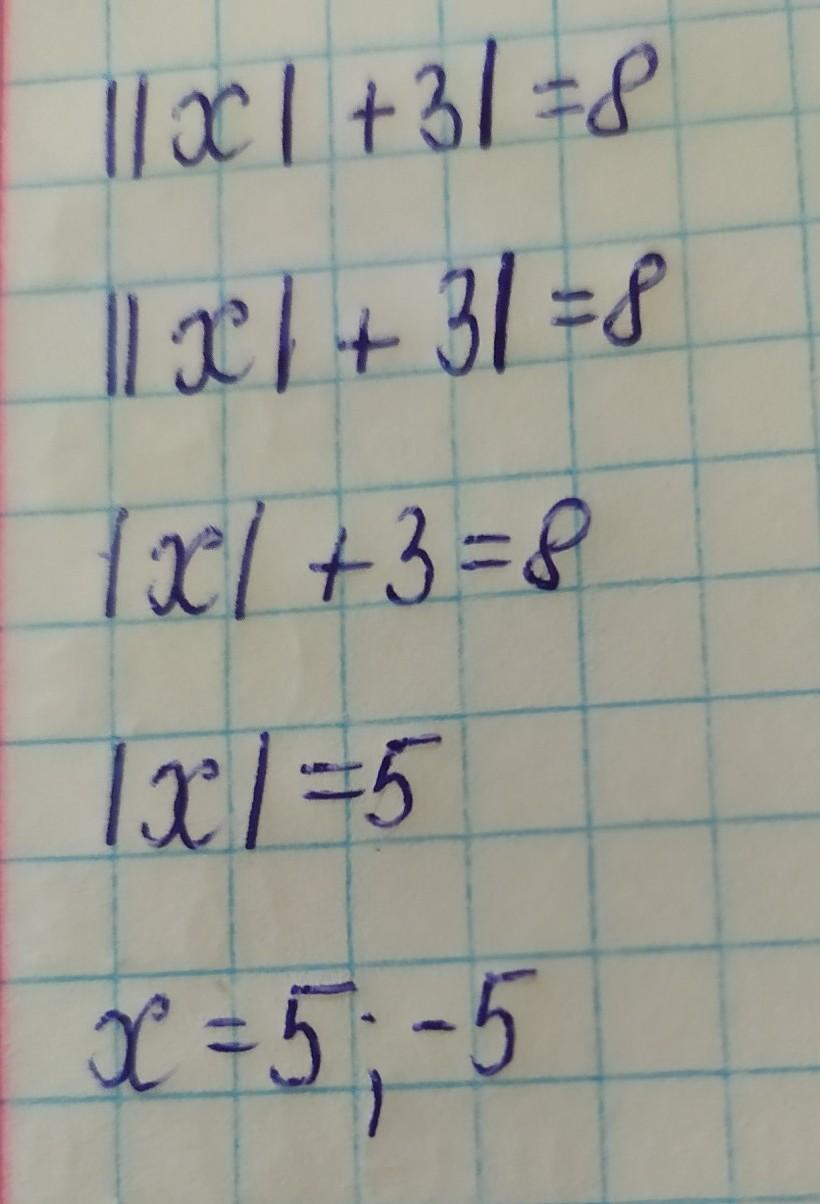 ||x| + 3| = 8
||x| + 3| = 8
|x| + 3 = 8
|x| = 5
x = 5; -5